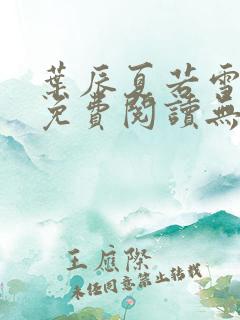 葉辰夏若雪
免費閱讀無
王應際
未经同意禁止转载